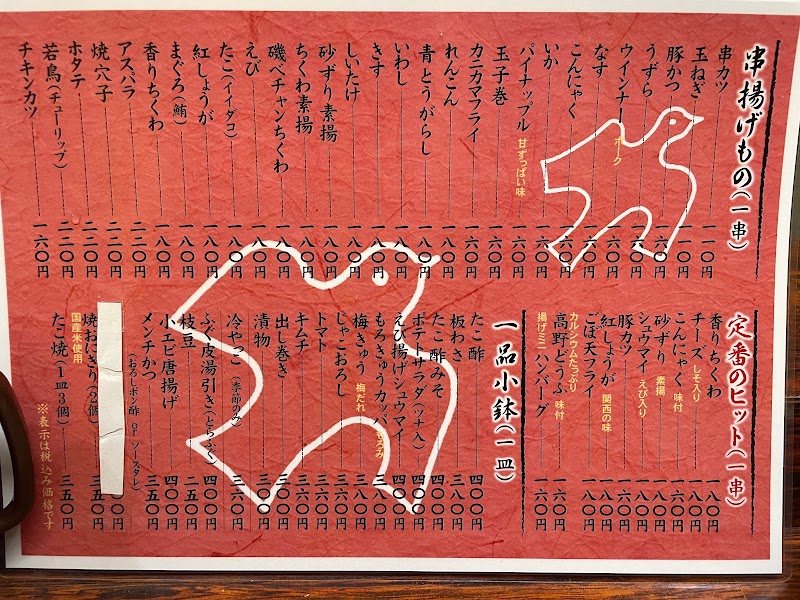 串揚げもの(一串)
串カツ 一一〇円
玉ねぎ 一一〇円
豚かつ 一六〇円
うずら 一六〇円
ウインナー ポーク 一六〇円
なす 一六〇円
こんにゃく 一六〇円
いか 一六〇円
パイナップル 甘ずっぱい味 一六〇円
玉子巻 一六〇円
カニカマフライ 一六〇円
れんこん 一八〇円
青とうがらし 一八〇円
いわし 一八〇円
きす 一八〇円
しいたけ 一八〇円
砂ずり素揚 一八〇円
ちくわ素揚 一八〇円
磯ベチャンちくわ 一八〇円
えび 一八〇円
たこ(イイダコ) 一八〇円
紅しょうが 一八〇円
まぐろ(鮪) 一八〇円
香りちくわ 一八〇円
アスパラ 二二〇円
焼穴子 二二〇円
ホタテ 二二〇円
若鳥(チューリップ) 二二〇円
チキンカツ 一六〇円
定番のヒット(一串)
香りちくわ 一八〇円
チーズ しそ入り 一八〇円
こんにゃく 味付 一六〇円
砂ずり 素揚 一八〇円
シュウマイ えび入り 一八〇円
豚カツ 一六〇円
紅しょうが 関西の味 一八〇円
ごぼ天フライ 一八〇円
カルシウムたっぷり
高野どうふ 味付 一六〇円
揚げミニハンバーグ 一六〇円
一品小鉢(一皿)
たこ酢 四〇〇円
板わさ 三八〇円
たこ酢みそ 四〇〇円
ポテトサラダ(ツナ入) 四〇〇円
えび揚げシュウマイ 四〇〇円
もろきゅうカッパ もろみ 三八〇円
梅きゅう 梅だれ 三八〇円
じゃこおろし 三五〇円
トマト 三〇〇円
キムチ 三〇〇円
出し巻き 三〇〇円
漬物 三〇〇円
冷やっこ 三六〇円
ふぐ皮湯引き(とらふぐ) 四〇〇円
枝豆 二五〇円
小エビ唐揚げ 四〇〇円
メンチかつ 三五〇円
(おろしポン酢 or ソースタレ)
〇〇円
焼おにぎり(2個) 三五〇円
国産米使用
たこ焼(1皿3個) 三五〇円
※表示は税込み価格です